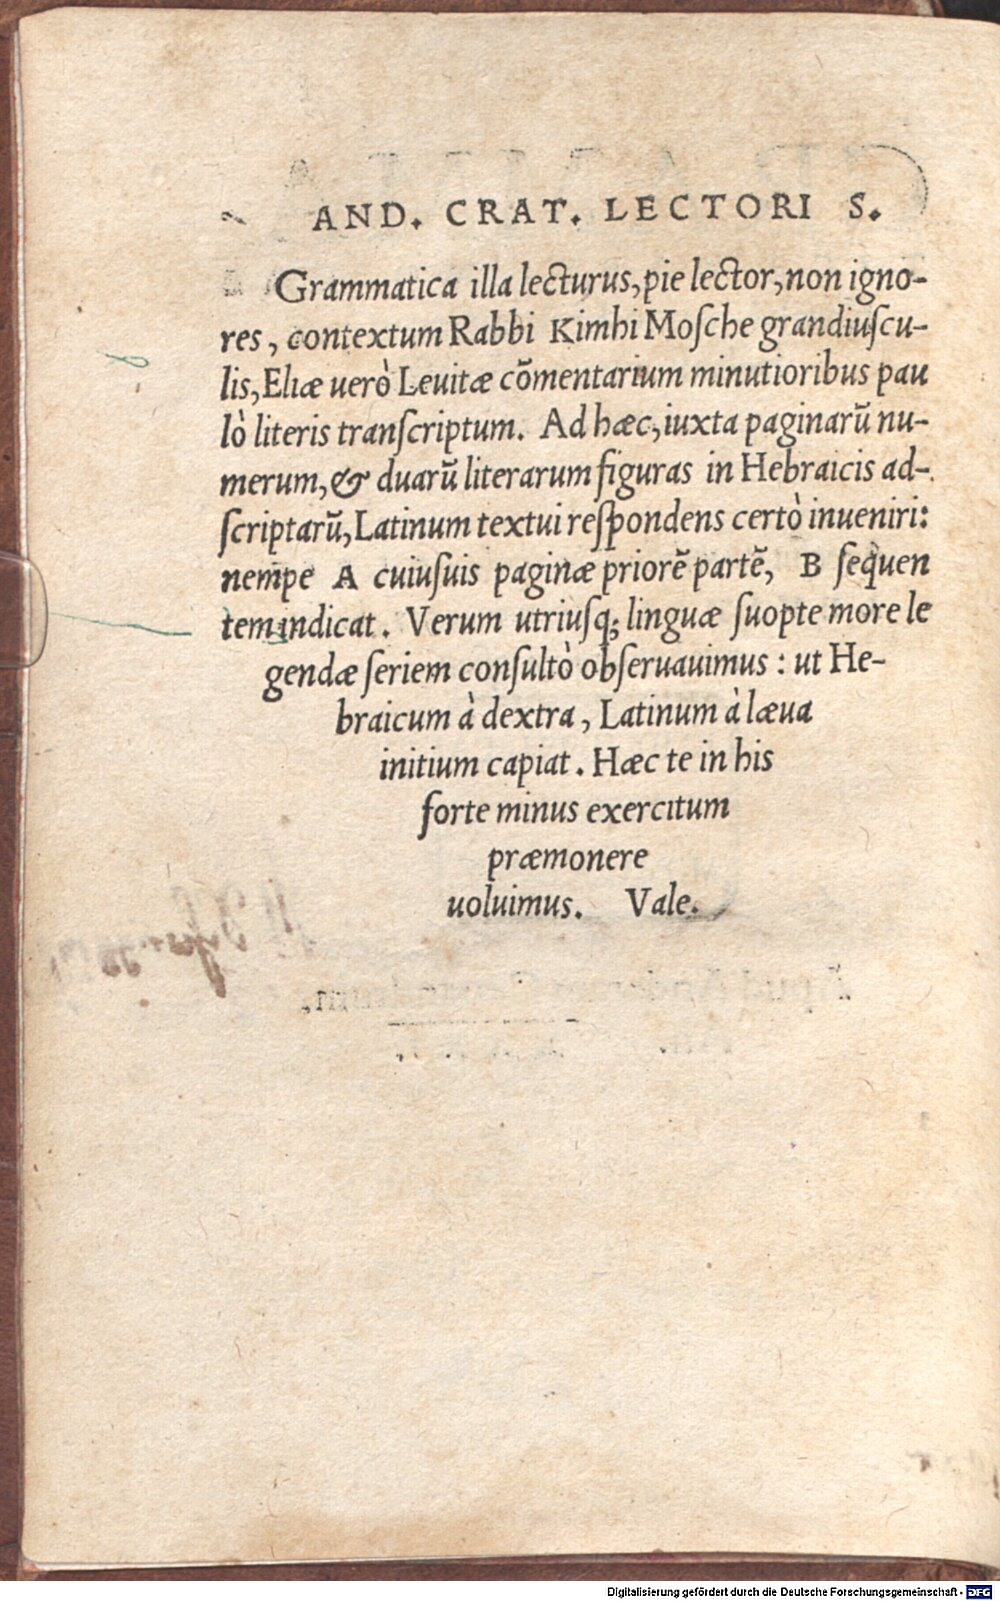 AND. CRAT. LECTORI S.
Grammatica illa lecturus, pie lector, non igno-
res, contextum Rabbi Kimhi Moſche grandiuſcu-
lis, Eliæ uerò Leuitæ cōmentarium minutioribus pau
lò literis tranſcriptum. Ad hæc, iuxta paginarū nu-
merum, & duarū literarum figuras in Hebraicis ad-
ſcriptarū, Latinum textui reſpondens certò inueniri:
nempe A cuiuſuis paginæ priorē partē, B ſequen
tem indicat. Verum utriuſq; linguæ ſuopte more le
gendæ ſeriem conſultò obſeruauimus: ut He-
braicum à dextra, Latinum à læua
initium capiat. Hæc te in his
forte minus exercitum
præmonere
uoluimus. Vale.
Digitalisierung gefördert durch die Deutsche Forschungsgemeinschaft - DFG